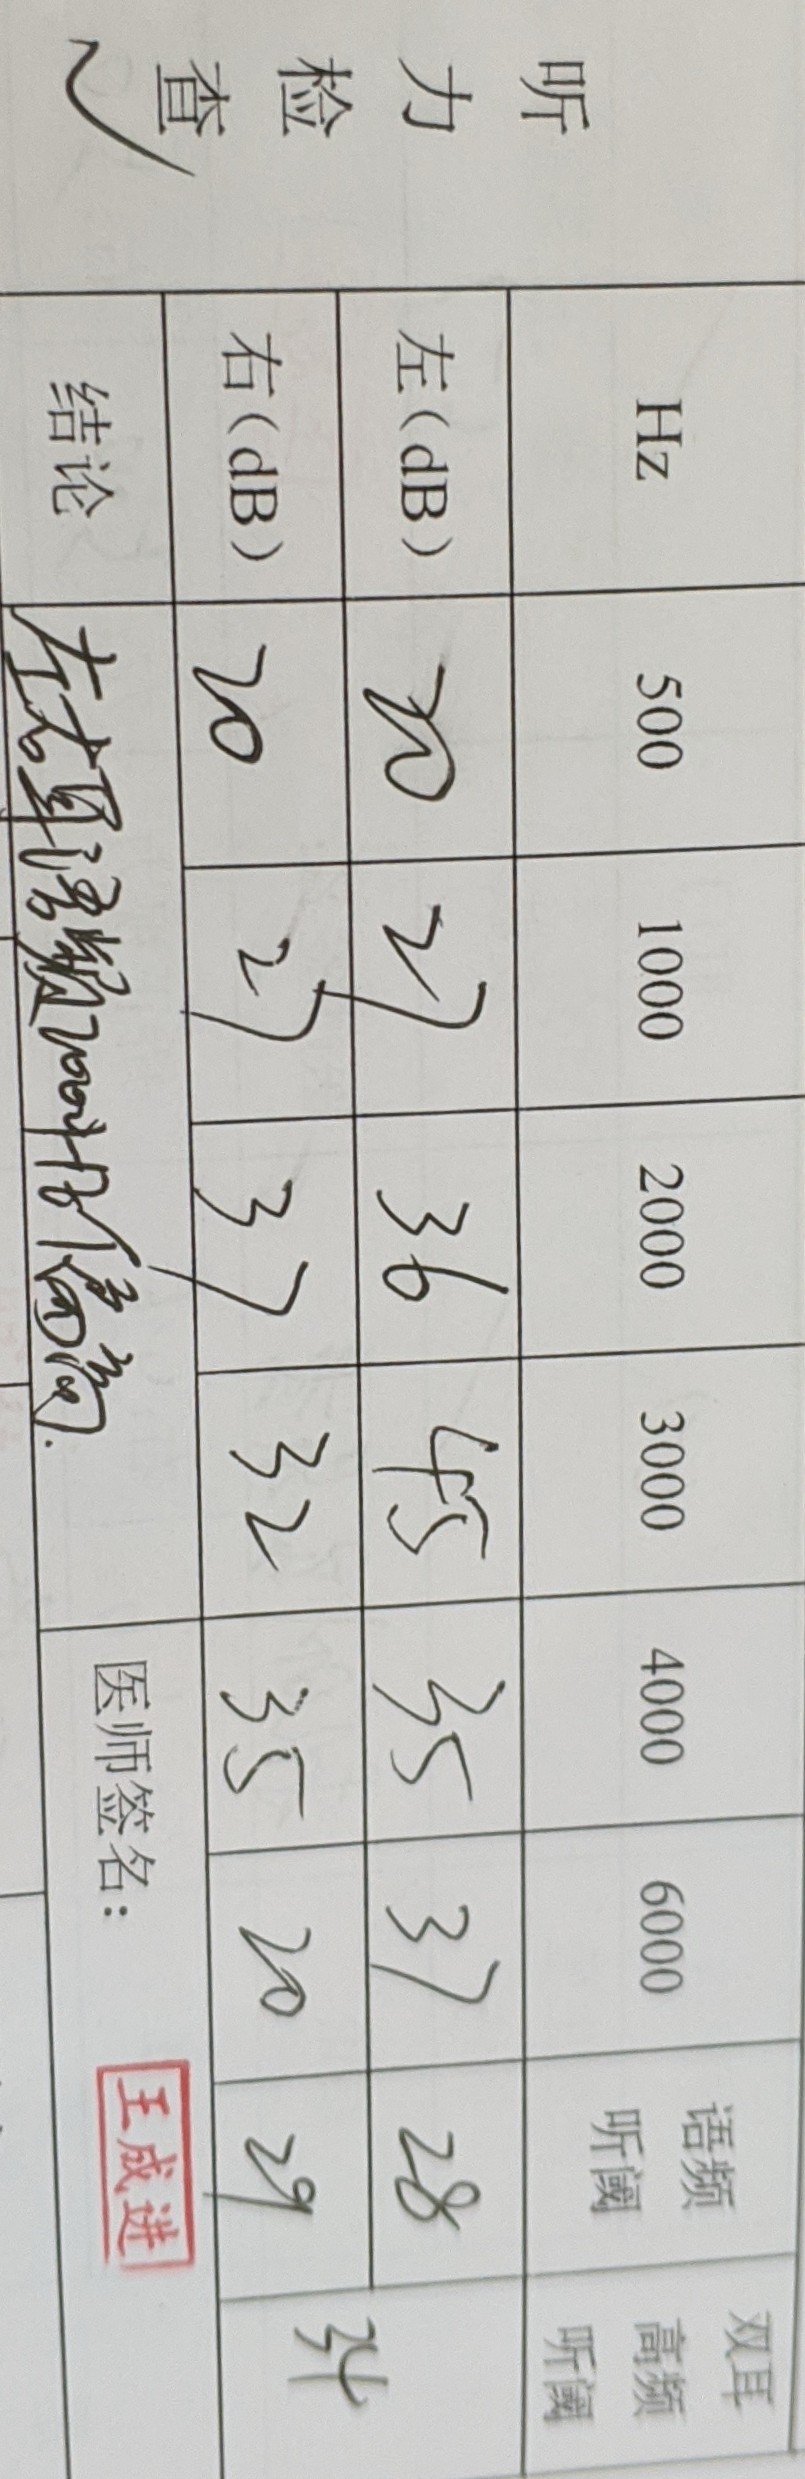 听力检查
Hz 500 1000 2000 3000 4000 6000 语频听阈 双耳高频听阈
左(dB) 20 27 36 45 35 37 28 34
右(dB) 20 27 37 32 35 20 29
结论 左右耳语频2000Hz听阈偏高. 医师签名: 王成进